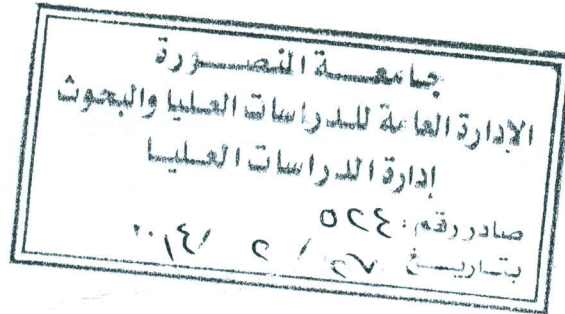 جامعة المنصورة
الإدارة العامة للدراسات العليا والبحوث
إدارة الدراسات العليا
صادر رقم :
بتاريخ